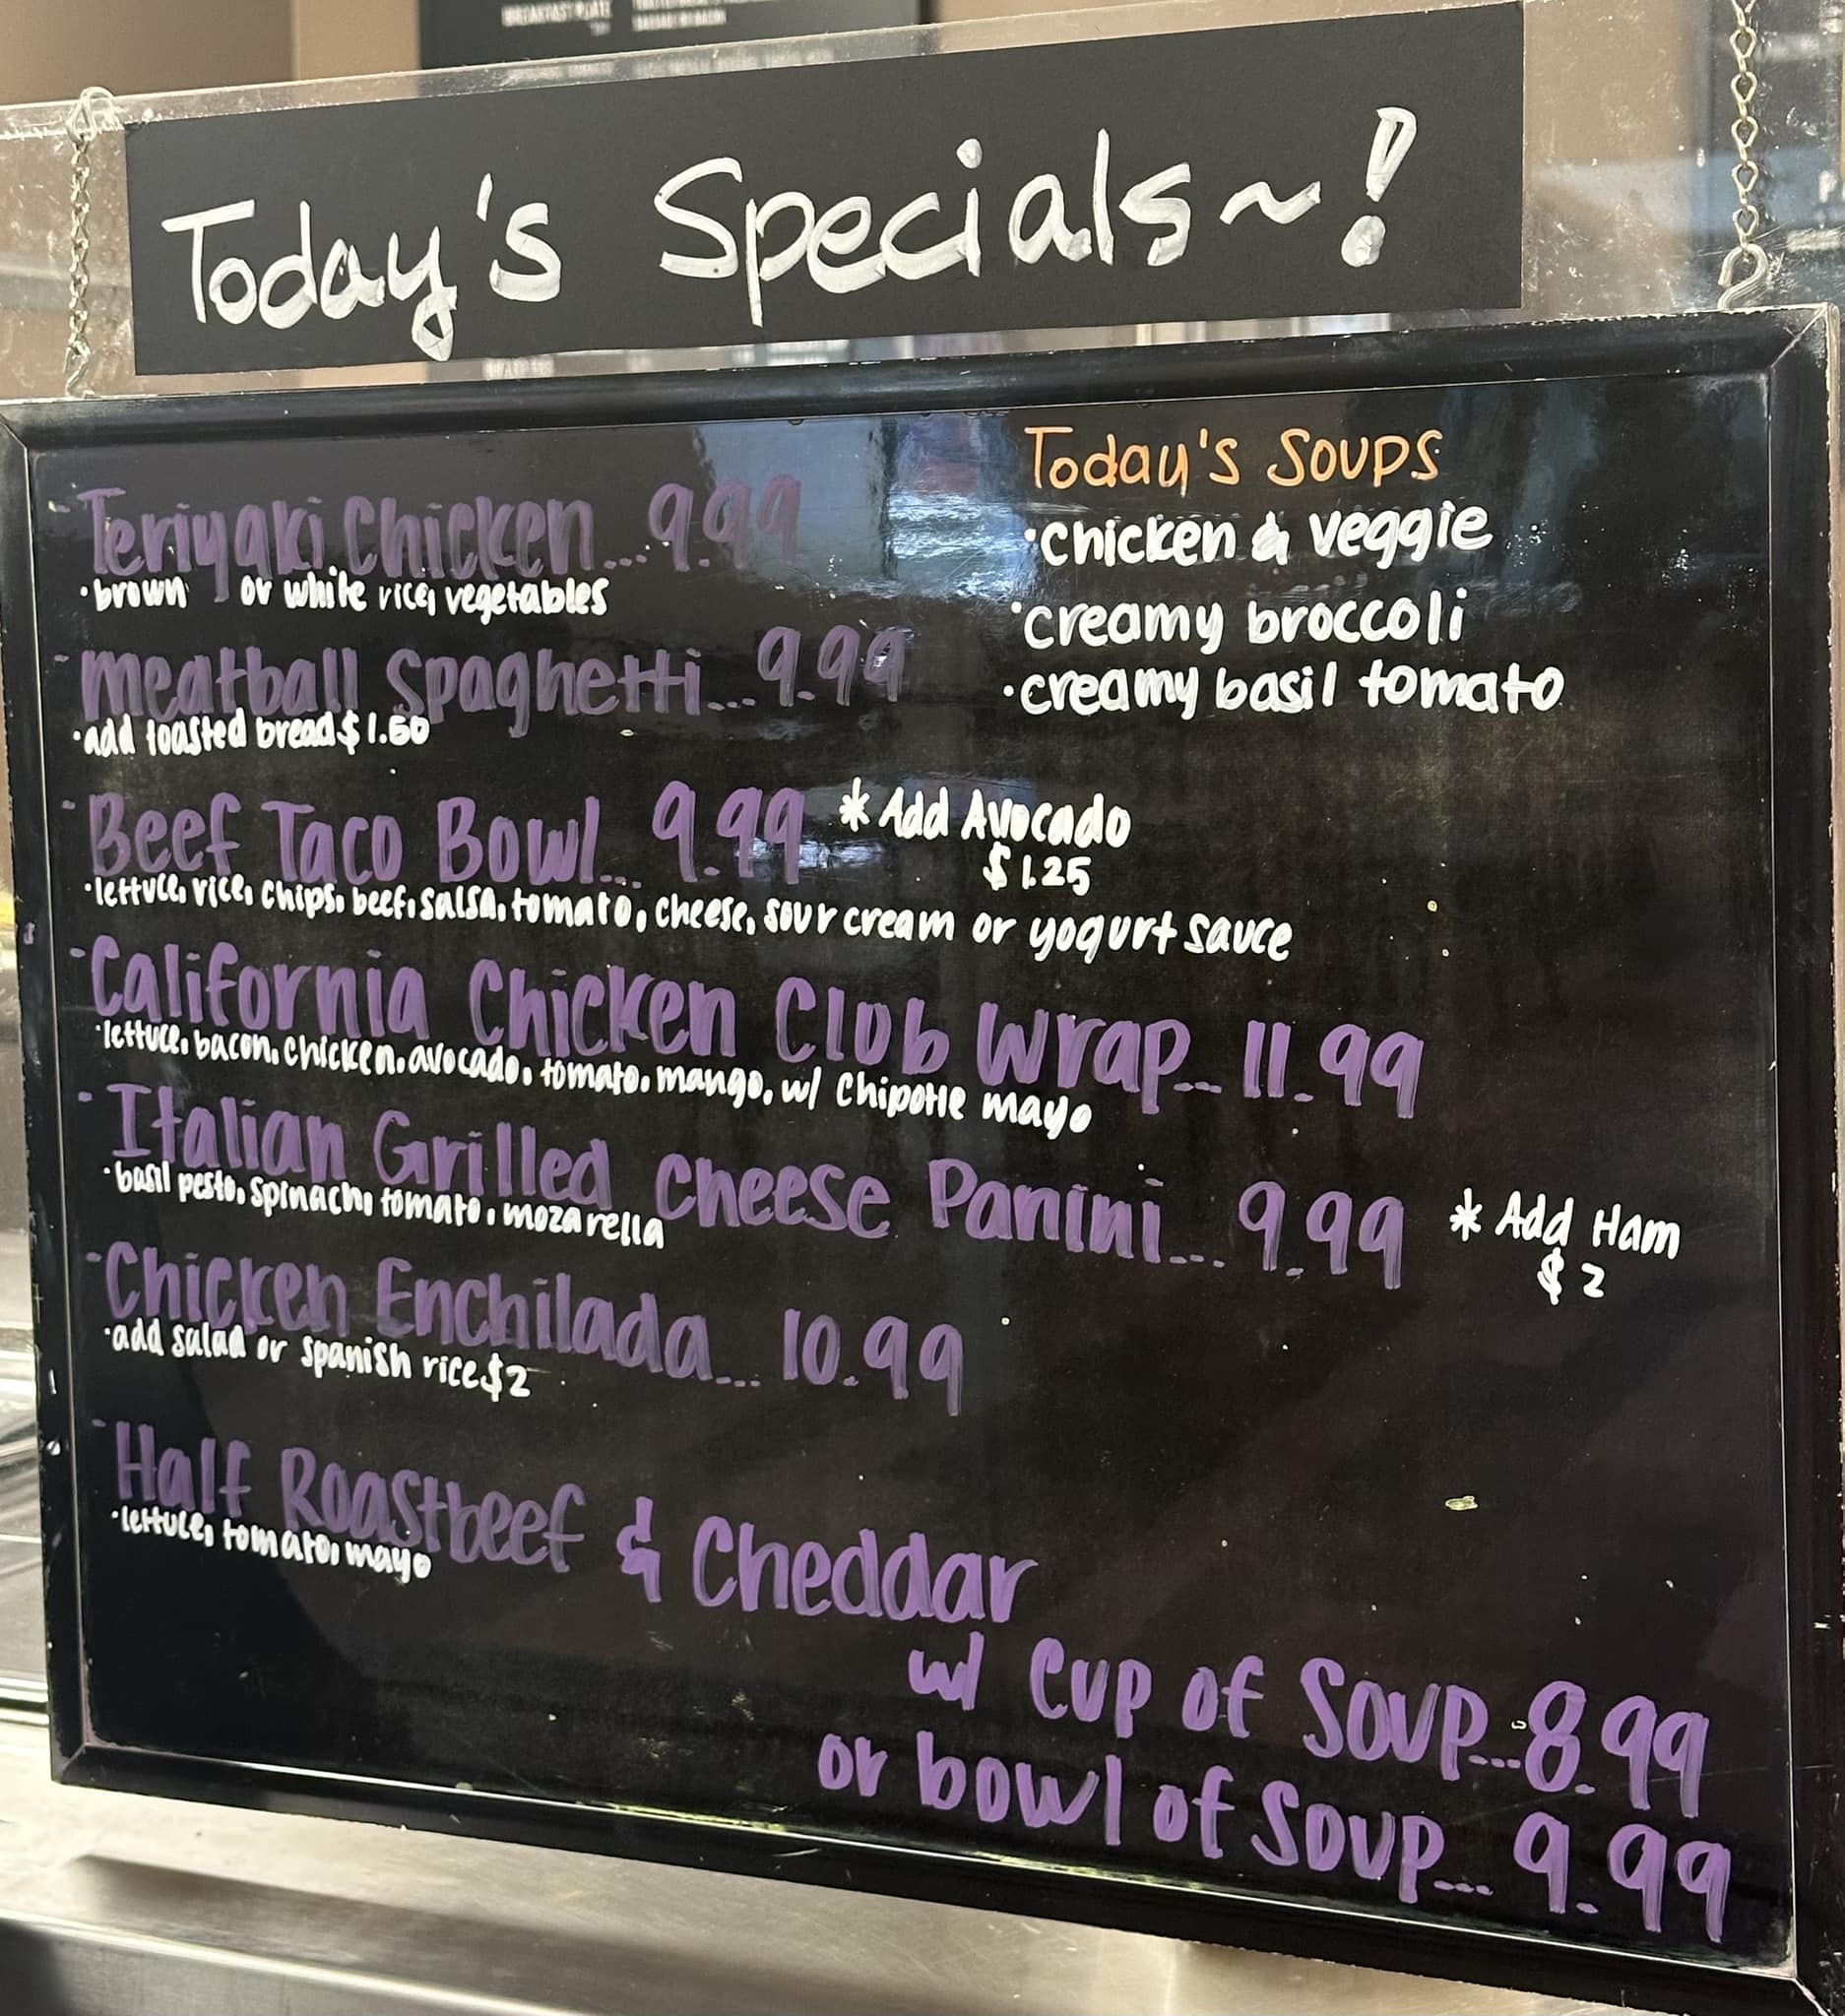 BREAKFAST PLATE
Today's Specials~!
Today's Soups
·chicken & veggie
·creamy broccoli
·creamy basil tomato
-Teriyaki Chicken...9.99
·brown or white rice, vegetables
-meatball Spaghetti...9.99
·add toasted bread $1.50
-Beef Taco Bowl...9.99 * Add Avocado
$1.25
·lettuce, rice, chips, beef, salsa, tomato, cheese, sour cream or yogurt sauce
-California Chicken Club Wrap...11.99
·lettuce, bacon, chicken, avocado, tomato, mango, w/ Chipotle mayo
-Italian Grilled cheese Panini...9.99 * Add Ham
$2
·basil pesto, spinach, tomato, mozarella
-Chicken Enchilada...10.99
·add salad or spanish rice $2
-Half Roastbeef & Cheddar
·lettuce, tomato, mayo
w/ Cup of Soup...8.99
or bowl of Soup...9.99